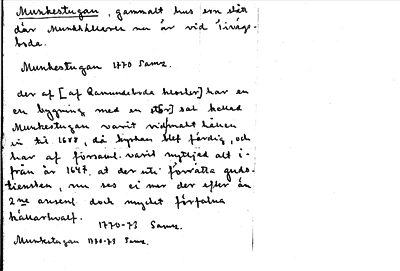 Munkestugan, gammalt hus som stått
där Munkkällaren nu är vid Tivägs-
boda.
Munkestugan 1770 Samz.
der af [af Ramundeboda kloster] har en
en bygning med en stor sal kallad
Munkestugan varit vidmakt hållen
in til 1688, då kyrkan blef färdig, och
har af församl. varit nyttjad alt i-
från år 1647, at der uti förrätta guds-
tiensten, nu ses ei mer der efter än
2ne ansenl. doch mycket förfalna
källarhvalf.
1770-73 Samz.
Munkstugan 1770-73 Samz.